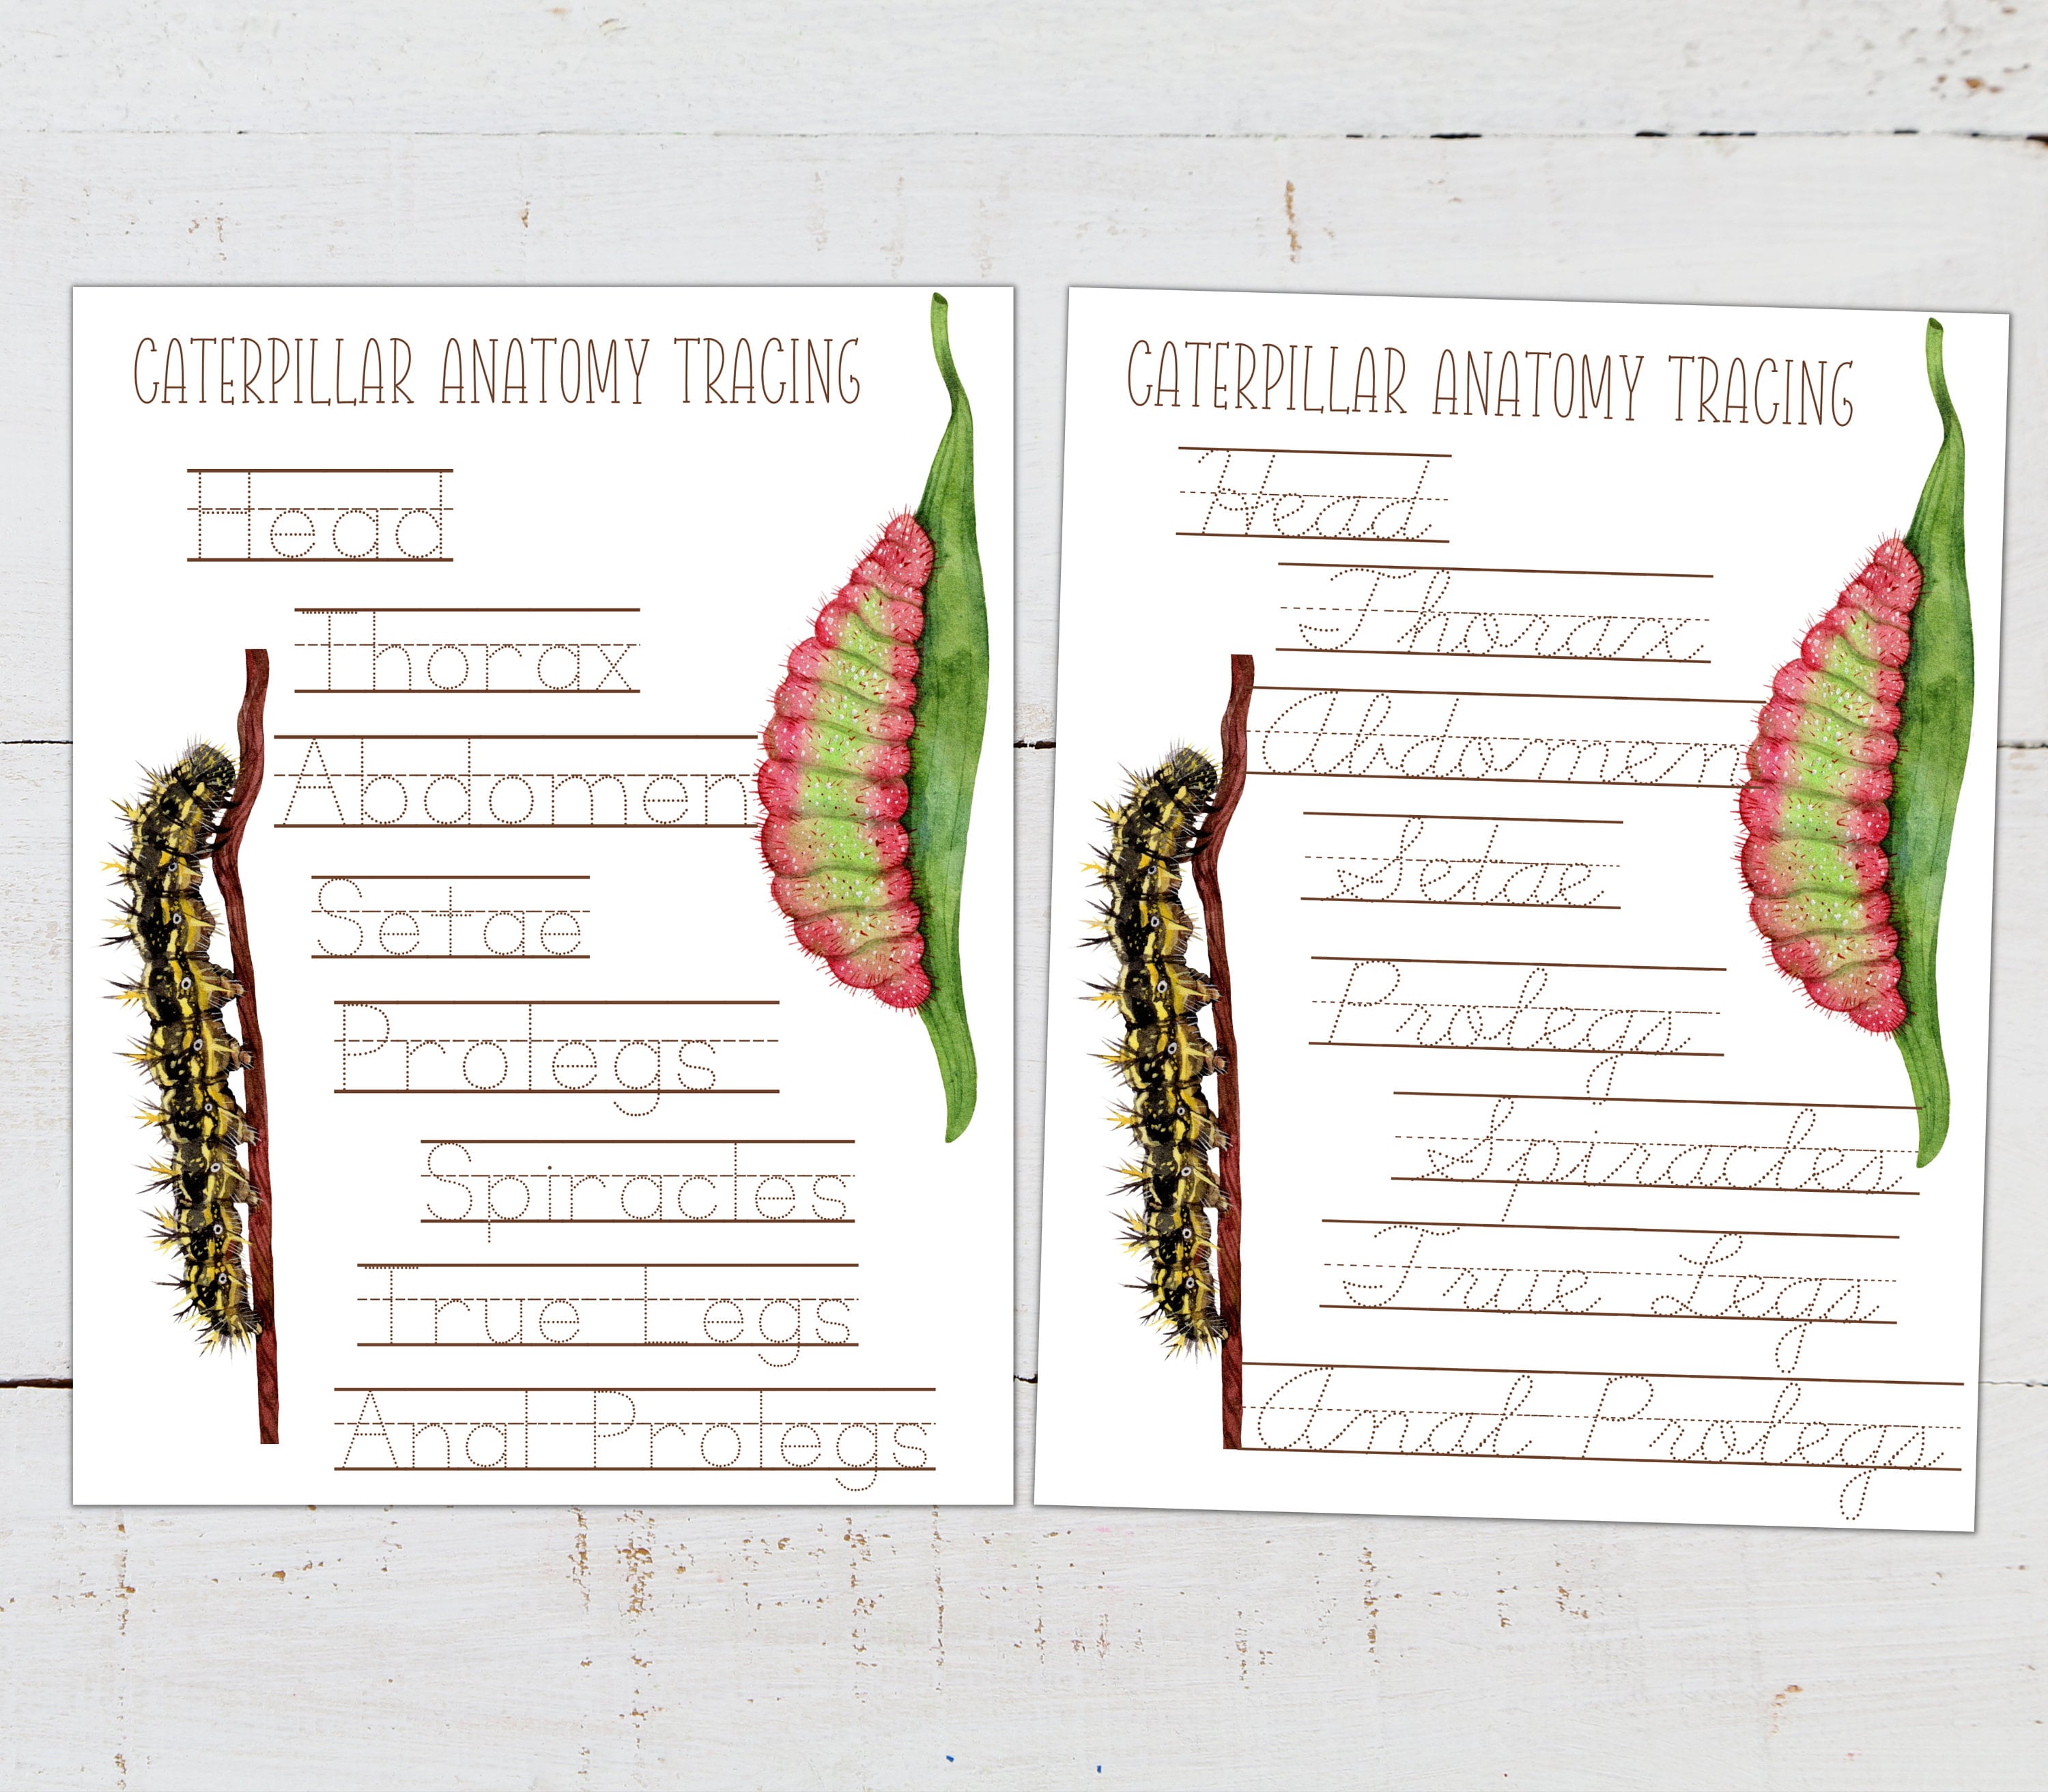 CATERPILLAR ANATOMY TRACING
Head
Thorax
Abdomen
Setae
Prolegs
Spiracles
True Legs
Anal Prolegs
CATERPILLAR ANATOMY TRACING
Head
Thorax
Abdomen
Setae
Prolegs
Spiracles
True Legs
Anal Prolegs